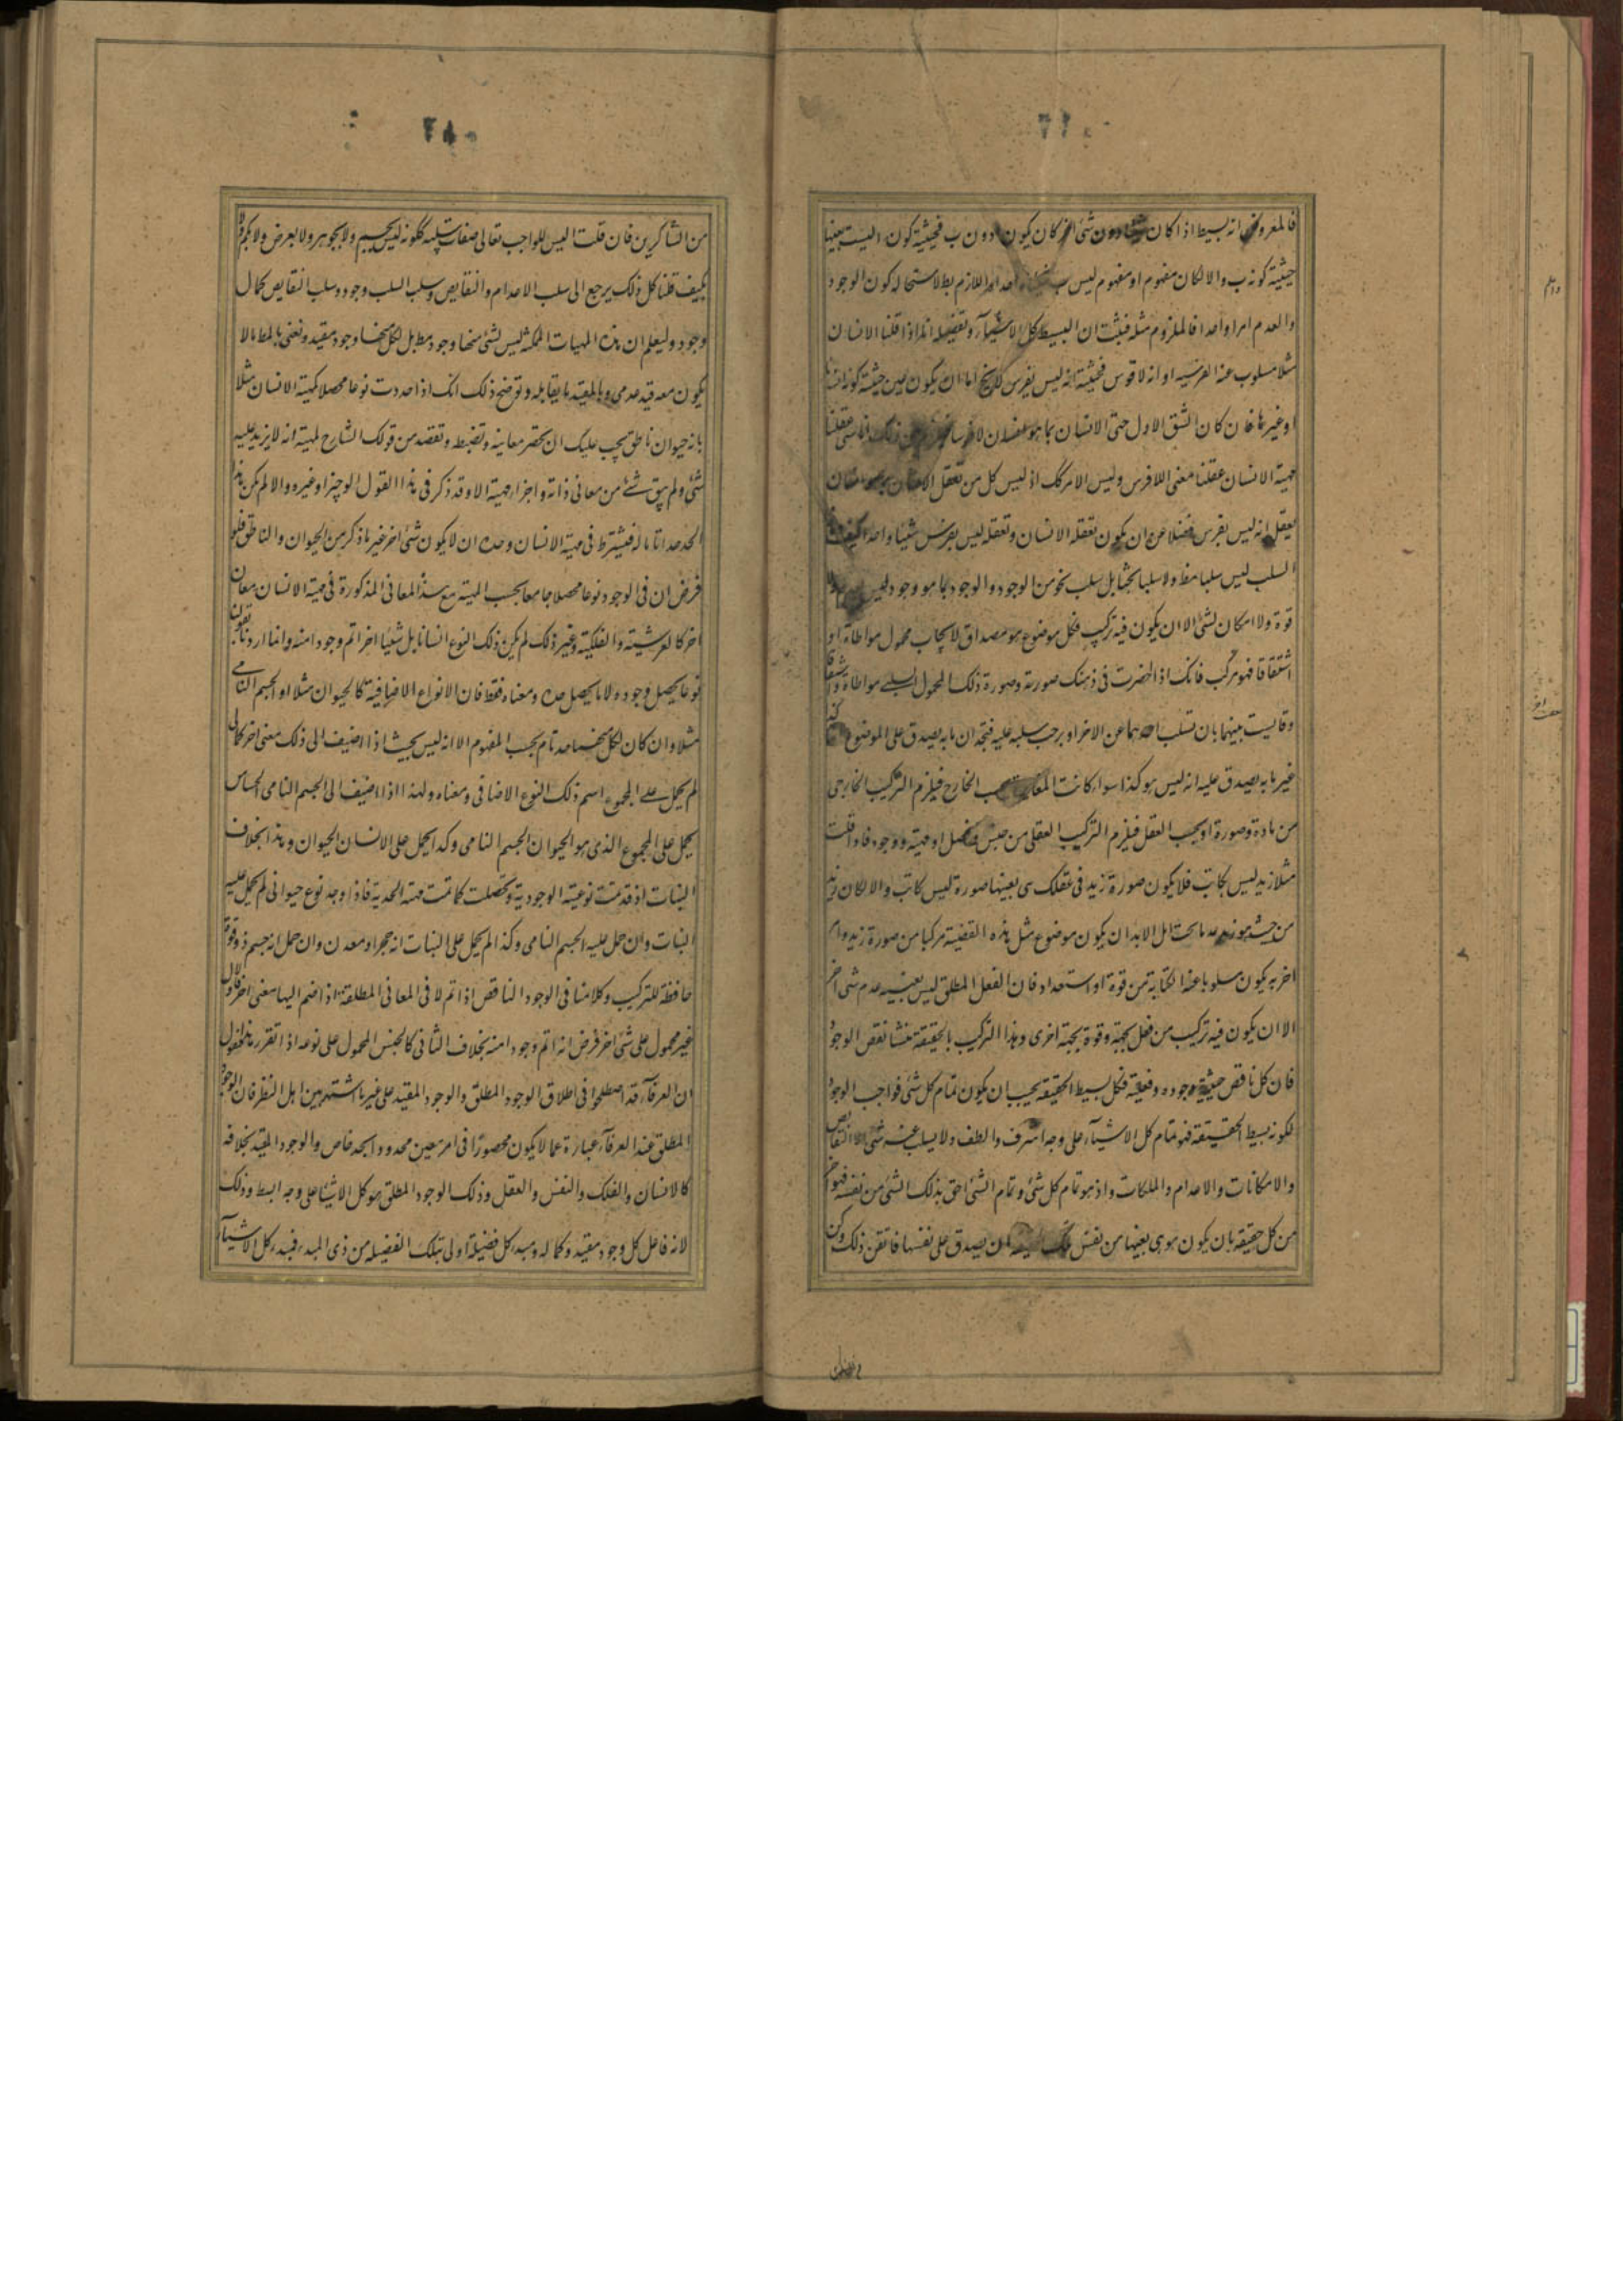 فالمعروض انه بسيط اذا كان دون شئ اخر كان يكون ا دون ب فحيثية كون ا ليست بعينها
حيثية كونه ب والا لكان مفهوم ا ومفهوم ليس ب اللازم بط لاستحالة كون الوجود
والعدم امرا واحدا فالملزوم مثله فثبت ان البسيط كل الاشيآء وتفصيله انه اذا قلنا الانسان
مثلا مسلوب عنه الفرسيه او انه لا فرس فحيثية انه ليس بفرس لا يخ اما ان يكون عين حيثية كونه انسانا
او غيرها فان كان الشق الاول حتى الانسان بما هو انسان لا فرسا عقلنا
مهية الانسان عقلنا معنى اللافرس وليس الامر كك اذ ليس كل من تعقل الانسان
يعقل انه ليس بفرس فضلا عن ان يكون تعقله الانسان وتعقله ليس بفرس شيئا واحدا كيف
السلب ليس سلبا مط ولا سلبا بحتا بل سلب نحو من الوجود والوجود بما هو وجود ليس
قوة ولا امكان لشئ الا ان يكون فيه تركيب فكل موضوع هو مصداق لايجاب محمول مواطاة او
اشتقاقا فهو مركب فانك اذا احضرت فى ذهنك صورته وصورة ذلك المحمول السلبى مواطاة او اشتقاقا
وقايست بينهما بان تسلب احدهما عن الاخر او يوجب سلبه عليه فتجد ان ما به يصدق على الموضوع انه كذا
غير ما به يصدق عليه انه ليس هو كذا سواء كانت المغايرة بحسب الخارج فيلزم التركيب الخارجى
من مادة وصورة او بحسب العقل فيلزم التركيب العقلى من جنس وفصل او مهية ووجود فاذا قلت
مثلا زيد ليس بكاتب فلا يكون صورة زيد فى عقلك هى بعينها صورة ليس كاتب والا لكان زيد
من حيث هو زيد عدما بحتا بل لابد ان يكون موضوع مثل هذه القضية مركبا من صورة زيد وامر
اخر به يكون مسلوبا عنه الكتابة من قوة او استعداد فان الفعل المطلق ليس بعينه عدم شى اخر
الا ان يكون فيه تركيب من فعل بجهة وقوة بجهة اخرى وهذا التركيب بالحقيقة منشا نقص الوجود
فان كل ناقص حيثية وجوده وفعيلة فكل بسيط الحقيقه يجب ان يكون تمام كل شئ فواجب الوجود
لكونه بسيط الحقيقة فهو تمام كل الاشيآء على وجه اشرف والطف ولا يسلب عنه شئ الا النقائص
والامكانات والاعدام والملكات واذ هو تمام كل شئ وتمام الشئ احق بذلك الشئ من نفسه فهو احق
من كل حقيقه بان يكون هو هى بعينها من نفس تلك الحقيقة بان يصدق على نفسها فاتقن ذلك وكن
من الشاكرين فان قلت اليس للواجب تعالى صفات سلبيه ككونه ليس بجسيم ولا بجوهر ولا بعرض ولا بكم ولا
بكيف قلنا كل ذلك يرجع الى سلب الاعدام والنقايص وسلب السلب وجود وسلب النقايص كمال
وجود وليعلم ان هذه المهيات الممكنه ليس لشئ منها وجود مط بل لكل منها وجود مقيد ونعنى بالمط مالا
يكون معه قيد عدمى وبالمقيد ما يقابله وتوضح ذلك انك اذا حددت نوعا محصلا كمهية الانسان مثلا
بانه حيوان ناطق يجب عليك ان تحصر معانيه وتضبط وتقصد من قولك الشارح لمهيته انه لا يزيد عليه
شئ ولم يبق شئ من معانى ذاته واجزاء مهيته الا وقد ذكر فى هذا القول الوجيز او غيره والا لم يكن هذا
الحد حدا تاما له فيشترط فى مهية الانسان وحده ان لا يكون شئ اخر غير ما ذكر من الحيوان والناطق فلو
فرض ان فى الوجود نوعا محصلا جامعا بحسب المهية مع هذا المعانى المذكورة فى مهية الانسان معان
اخر كالفرسية والفلكية وغير ذلك لم يكن ذلك النوع انسانا بل شيئا اخر اتم وجودا منه وانما اردنا بقولنا
نوعا يحصل وجوده لا ما يحصل حده ومعناه فقط فان الانواع الاضافية كالحيوان مثلا او الجسم النامى
مثلا وان كان لكل منهما حد تام بحسب المفهوم الا انه ليس بحيث اذا اضيف الى ذلك معنى اخر كمالى
لم يحمل على المجموع اسم ذلك النوع الاضافى ومعناه ولهذا اذا اضيف الى الجسم النامى الحساس
يحمل على المجموع الذى هو الحيوان الجسم النامى وكذا يحمل على الانسان الحيوان وهذا بخلاف
النبات اذ قد تمت نوعيته الوجودية وتحصلت كما تمت مهيته الحدية فاذا وجد نوع حيوانى لم يحمل عليه
النبات وان حمل عليه الجسم النامى وكذا لم يحمل على النبات انه حجر او معدن وان حمل انه جسم ذو قوة
حافظة للتركيب وكلامنا فى الوجود الناقص اذا تم لا فى المعانى المطلقة اذا ضم اليها معنى اخر فالاول
غير محمول على شئ اخر فرض انه اتم وجودا منه بخلاف الثانى كالجنس المحمول على نوعه اذا تقرر هذا فنقول
ان العرفآء قد اصطلحوا فى اطلاق الوجود المطلق والوجود المقيد على غير ما اشتهر بين اهل النظر فان الوجود
المطلق عند العرفآء عبارة عما لا يكون محصورا فى امر معين محدود بحد خاص والوجود المقيد بخلافه
كالانسان والفلك والنفس والعقل وذلك الوجود المطلق هو كل الاشياء على وجه ابسط وذلك
لانه فاعل كل وجود مقيد وكماله ومبدء كل فضيلة اولى بتلك الفضيله من ذى المبدء فمبدء كل الاشيآء